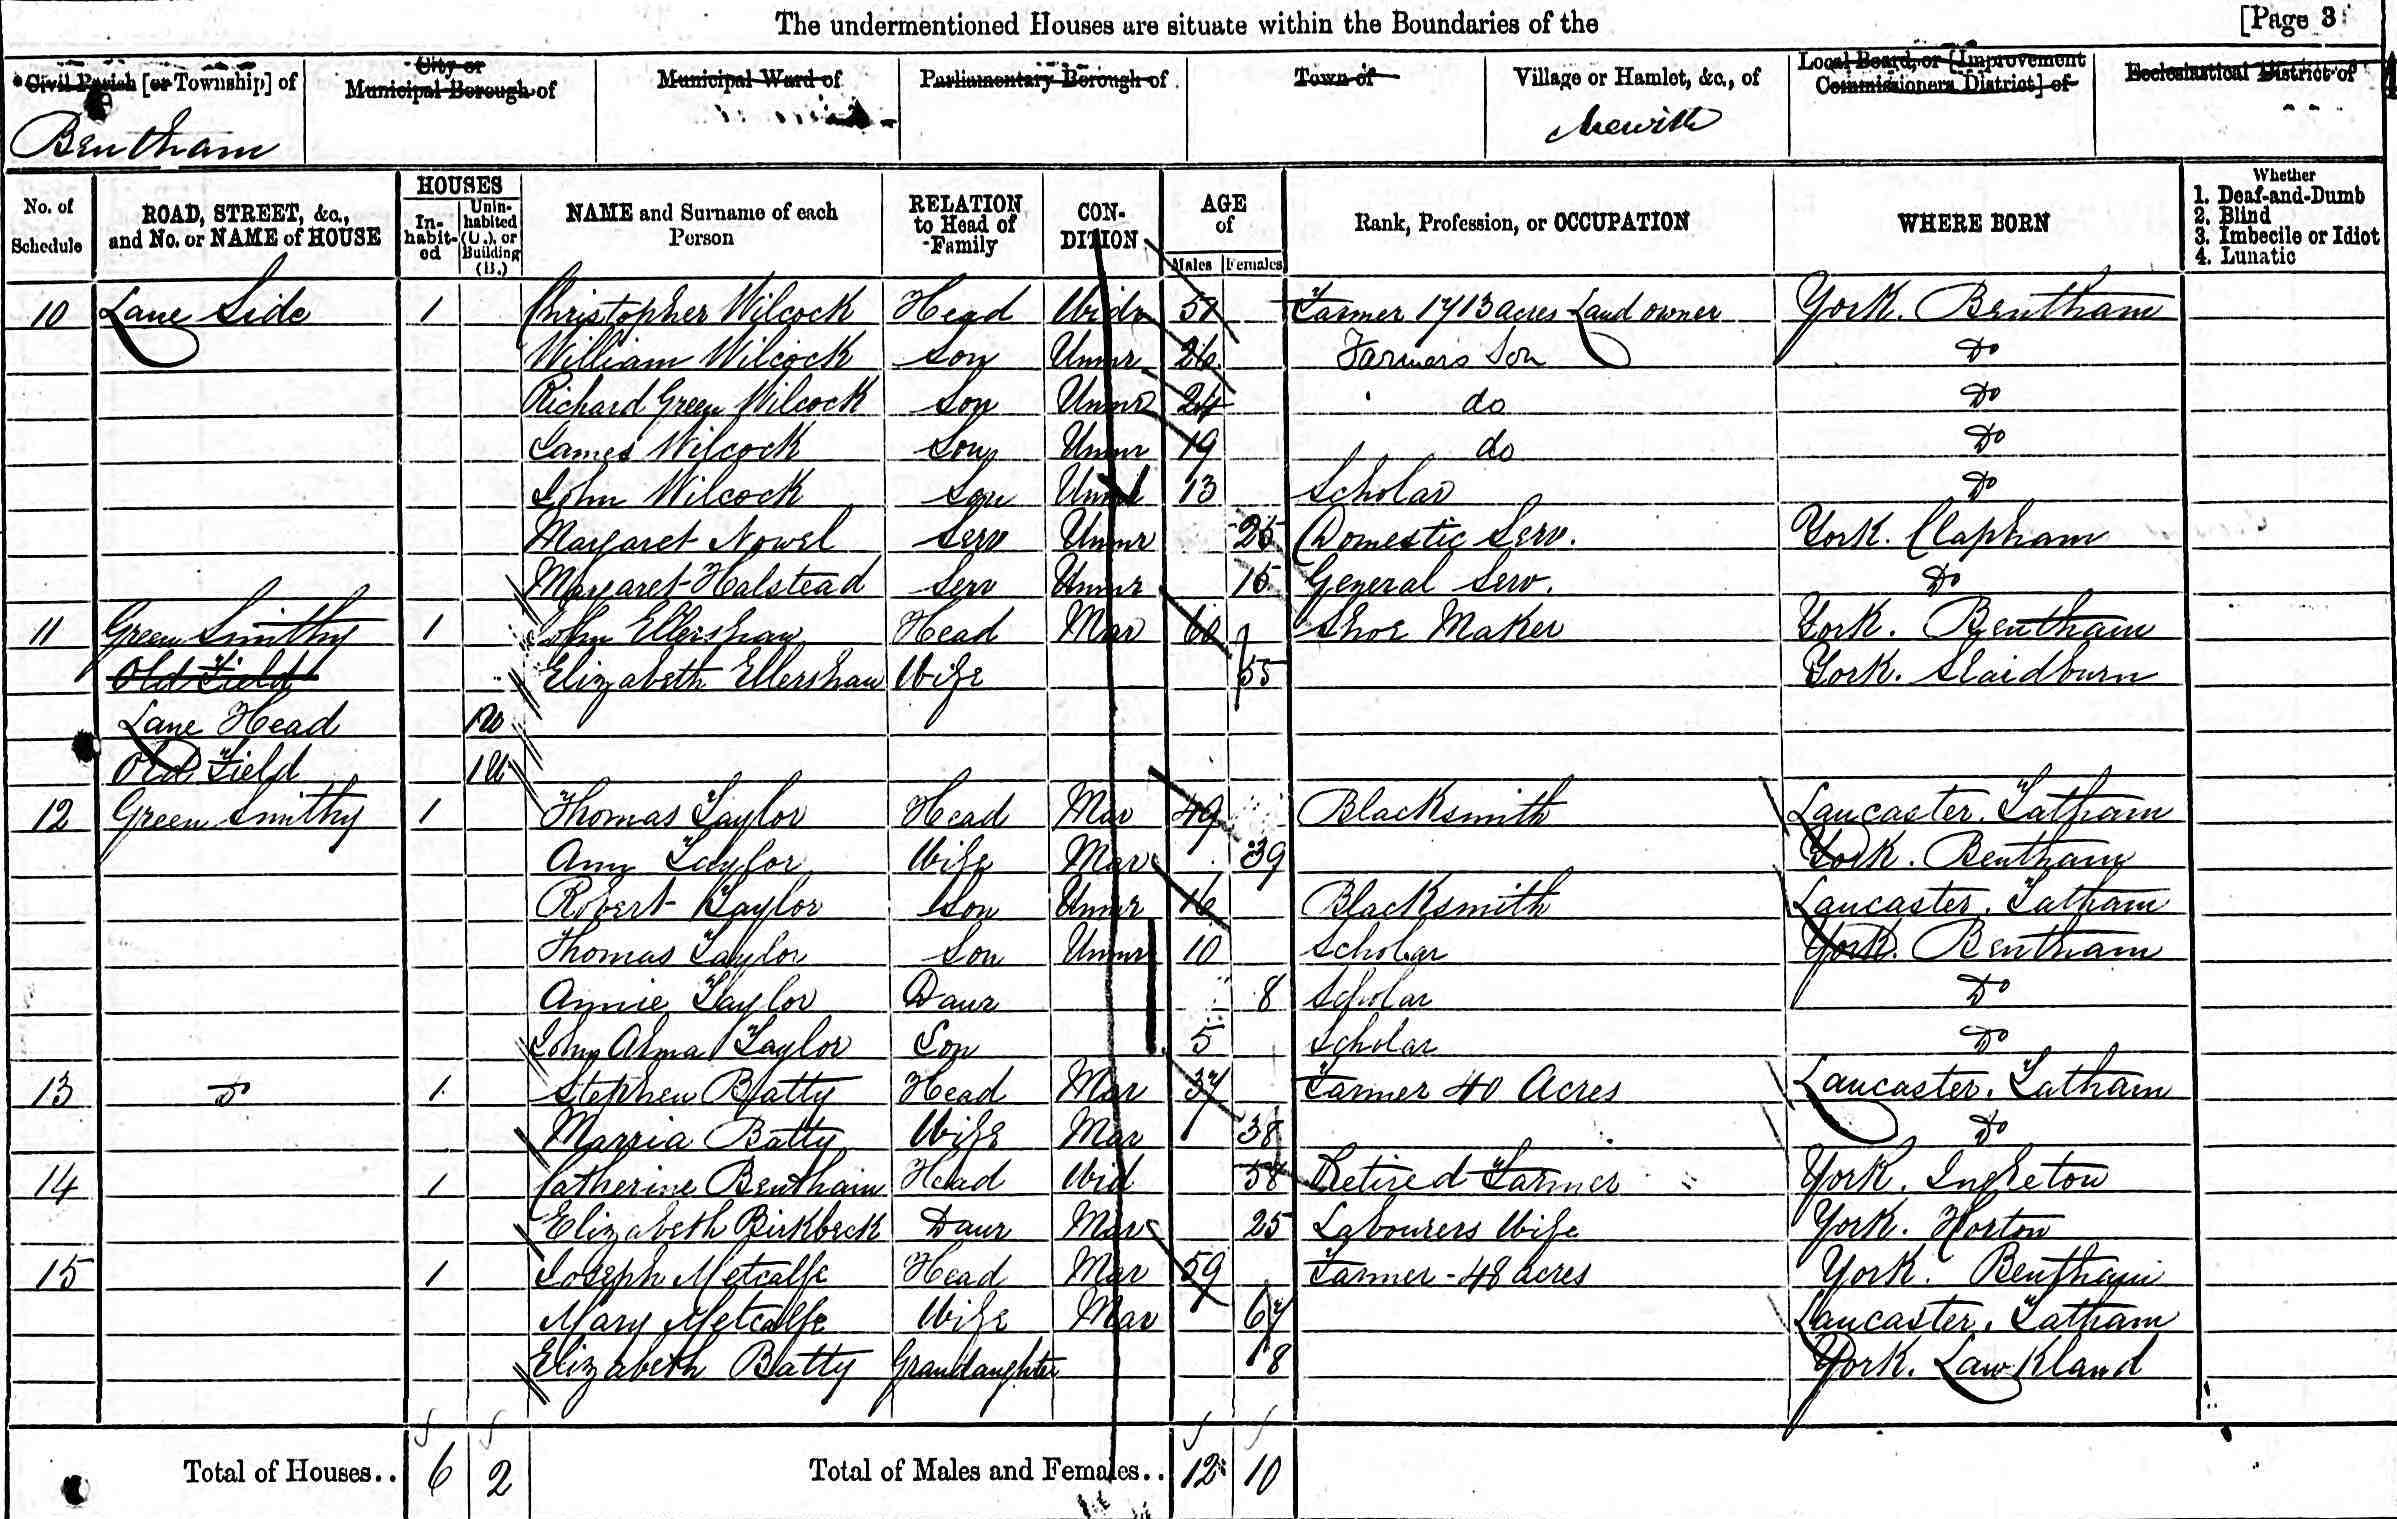 The undermentioned Houses are situate within the Boundaries of the [Page 3
Civil Parish [or Township] of
City or Municipal Borough of
Municipal Ward of
Parliamentary Borough of
Town of
Village or Hamlet, &c., of
Local Board, or [Improvement Commissioners District] of
Ecclesiastical District of
Bentham
No. of Schedule
ROAD, STREET, &c., and No. or NAME of HOUSE
HOUSES
In-habit-ed
Unin-habited (U.), or Building (B.)
NAME and Surname of each Person
RELATION to Head of Family
CON-DITION
AGE of
Males Females
Rank, Profession, or OCCUPATION
WHERE BORN
Whether
1. Deaf-and-Dumb
2. Blind
3. Imbecile or Idiot
4. Lunatic
10 Lane Side 1 Christopher Wilcock Head Widr Farmer acres Land owner York. Bentham
William Wilcock Son Unmr 26 Farmers Son Do
Richard Green Wilcock Son Unmr 24 do Do
James Wilcock Son Unmr 19 do Do
John Wilcock Son Unmr 13 Scholar Do
Margaret Nowel Serv Unmr 25 Domestic Serv. York. Clapham
Margaret Halstead Serv Unmr 15 General Serv. Do
11 Green Smithy 1 John Ellershaw Head Mar 60 Shoe Maker York. Bentham
Old Field Elizabeth Ellershaw Wife 55 York. Slaidburn
Lane Head 1U
Old Field 1U
12 Green Smithy 1 Thomas Taylor Head Mar 49 Blacksmith Lancaster. Tatham
Ann Taylor Wife Mar 39 York. Bentham
Robert Taylor Son Unmr 16 Blacksmith Lancaster. Tatham
Thomas Taylor Son Unmr 10 Scholar York. Bentham
Annie Taylor Daur 8 Scholar Do
John Alma Taylor Son 5 Scholar Do
13 Do 1 Stephen Batty Head Mar 37 Farmer 40 Acres Lancaster. Tatham
Batty Wife Mar 38 Do
14 1 Catherine Bentham Head Wid 58 Retired Farmer York. Ingleton
Elizabeth Birkbeck Daur Mar 25 Labourers Wife York. Horton
15 1 Joseph Metcalfe Head Mar 59 Farmer - 48 acres York. Bentham
Mary Metcalfe Wife Mar 67 Lancaster. Tatham
Elizabeth Batty Grandaughter 8 York. Lawkland
Total of Houses.. 6 2 Total of Males and Females.. 12 10